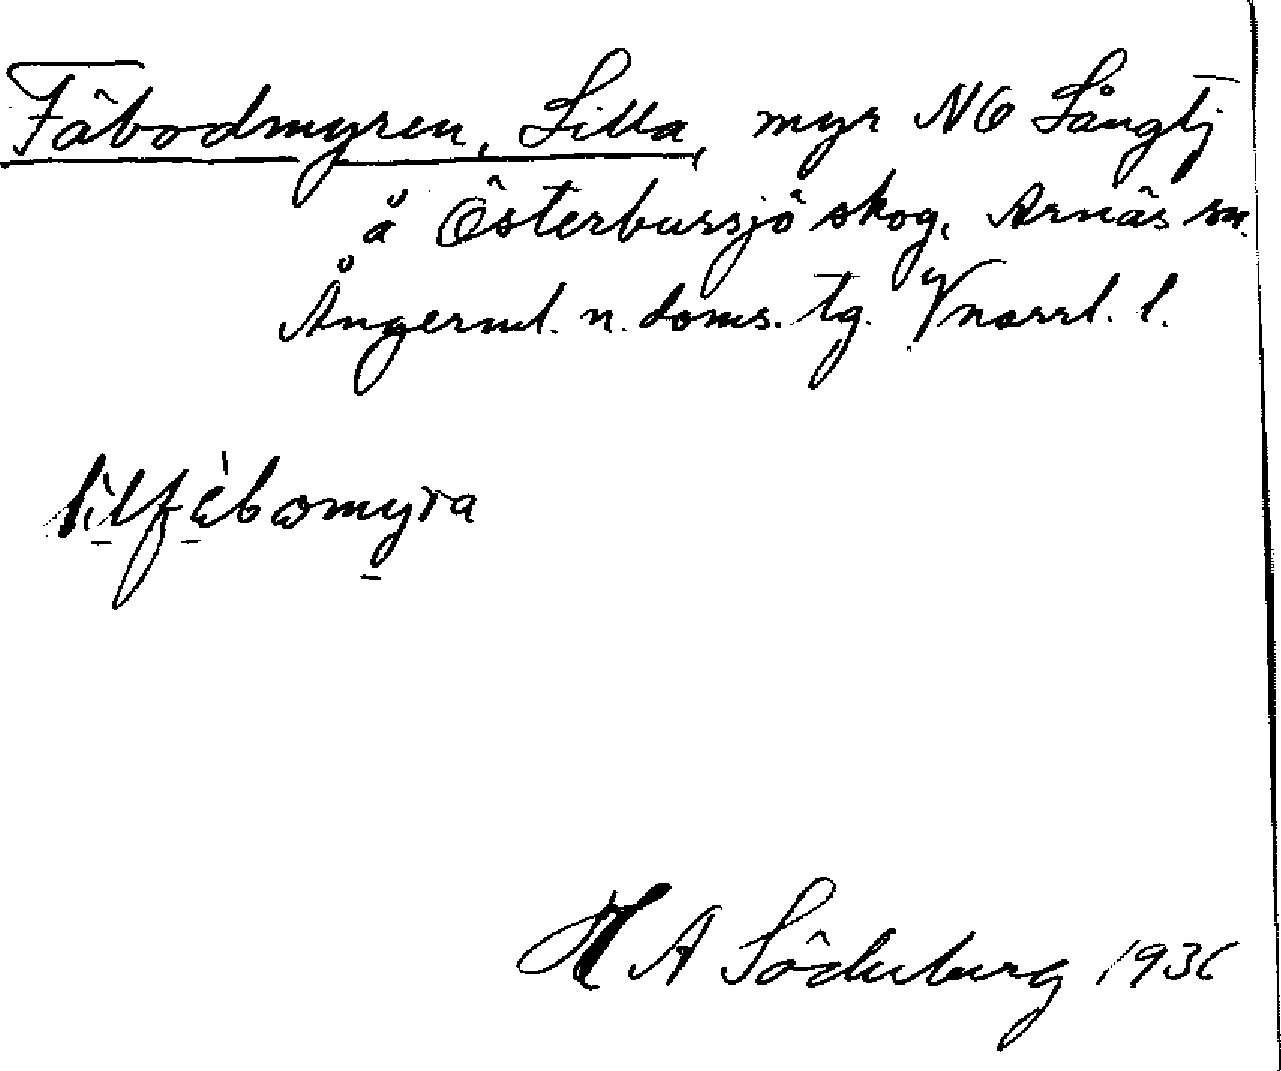 Fäbodmyren, Lilla, myr NO Långtj
å Österbursjö skog, Arnäs sn.
Ångerml. n. doms. tg. Vnorrl. l.
lilfàbomyra
H A Söderberg 1936